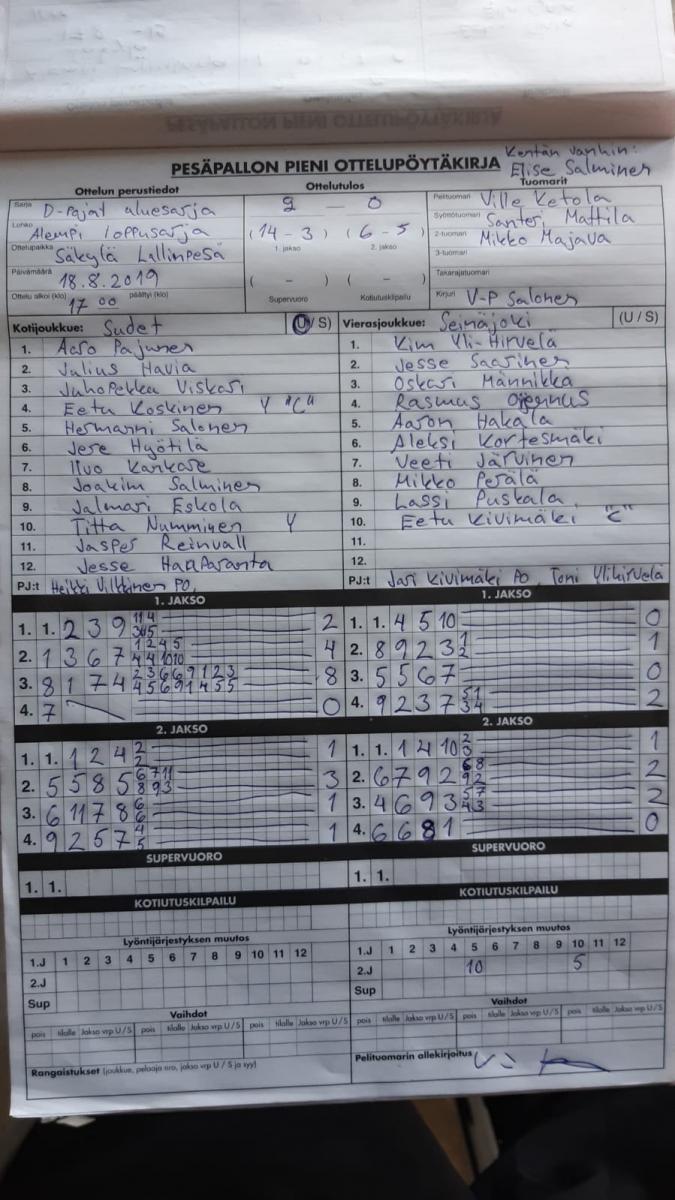 PESÄPALLON PIENI OTTELUPÖYTÄKIRJA
Kentän vanhin:
Elise Salminen
Ottelun perustiedot
Ottelutulos
Tuomarit
Sarja D-pojat aluesarja
2 – 0
Pelituomari Ville Ketola
Lohko Alempi loppusarja
(14 - 3) (6 - 5)
1. jakso 2. jakso
Syöttötuomari Santeri Mattila
2-tuomari Mikko Majava
Ottelupaikka Säkylä Lallinpesä
3-tuomari
Päivämäärä 18.8.2019
( - ) ( - )
Supervuoro Kotiutuskilpailu
Takarajatuomari
Ottelu alkoi (klo) 17 00 päättyi (klo)
Kirjuri V-P Salonen
Kotijoukkue: Sudet (U/S)
Vierasjoukkue: Seinäjoki (U/S)
1. Aaro Pajunen
2. Julius Havia
3. Juhopekka Viskari
4. Eetu Koskinen Y "C"
5. Hermanni Salonen
6. Jere Hyötilä
7. Iivo Kankare
8. Joakim Salminen
9. Jalmari Eskola
10. Titta Numminen Y
11. Jasper Reinvall
12. Jesse Haaparanta
PJ:t Heikki Vilkkinen PO,
1. Kim Yli-Hirvelä
2. Jesse Saarinen
3. Oskari Männikkä
4. Rasmus Ojennus
5. Aaron Hakala
6. Aleksi Kortesmäki
7. Veeti Järvinen
8. Mikko Perälä
9. Lassi Puskala
10. Eetu Kivimäki "C"
11.
12.
PJ:t Jari Kivimäki PO, Toni Ylihirvelä
1. JAKSO
1. 1. 2 3 9 2
2. 1 3 6 7 1 2 4 5 4 4 10 10 4
3. 8 1 7 4 2 3 6 6 9 1 2 3 4 5 6 9 1 4 5 5 8
4. 7 0
2. JAKSO
1. 1. 1 2 4 2 2 1
2. 5 5 8 5 6 7 11 8 9 3 3
3. 6 11 7 8 6 6 1
4. 9 2 5 7 4 5 1
SUPERVUORO
1. 1.
KOTIUTUSKILPAILU
1. JAKSO
1. 1. 4 5 10 0
2. 8 9 2 3 1 2 1
3. 5 5 6 7 0
4. 9 2 3 7 5 1 3 4 2
2. JAKSO
1. 1. 1 4 10 2 3 1
2. 6 7 9 2 6 8 9 2 2
3. 4 6 9 3 5 7 4 3 2
4. 6 6 8 1 0
SUPERVUORO
1. 1.
KOTIUTUSKILPAILU
Lyöntijärjestyksen muutos
1.J 1 2 3 4 5 6 7 8 9 10 11 12
2.J
Sup
Lyöntijärjestyksen muutos
1.J 1 2 3 4 5 6 7 8 9 10 11 12
2.J 10 5
Sup
Vaihdot
pois tilalle Jakso vrp U/S pois tilalle Jakso vrp U/S pois tilalle Jakso vrp U/S
Vaihdot
pois tilalle Jakso vrp U/S pois tilalle Jakso vrp U/S pois tilalle Jakso vrp U/S
Rangaistukset (joukkue, pelaaja nro, jakso vrp U/S ja syy)
Pelituomarin allekirjoitus